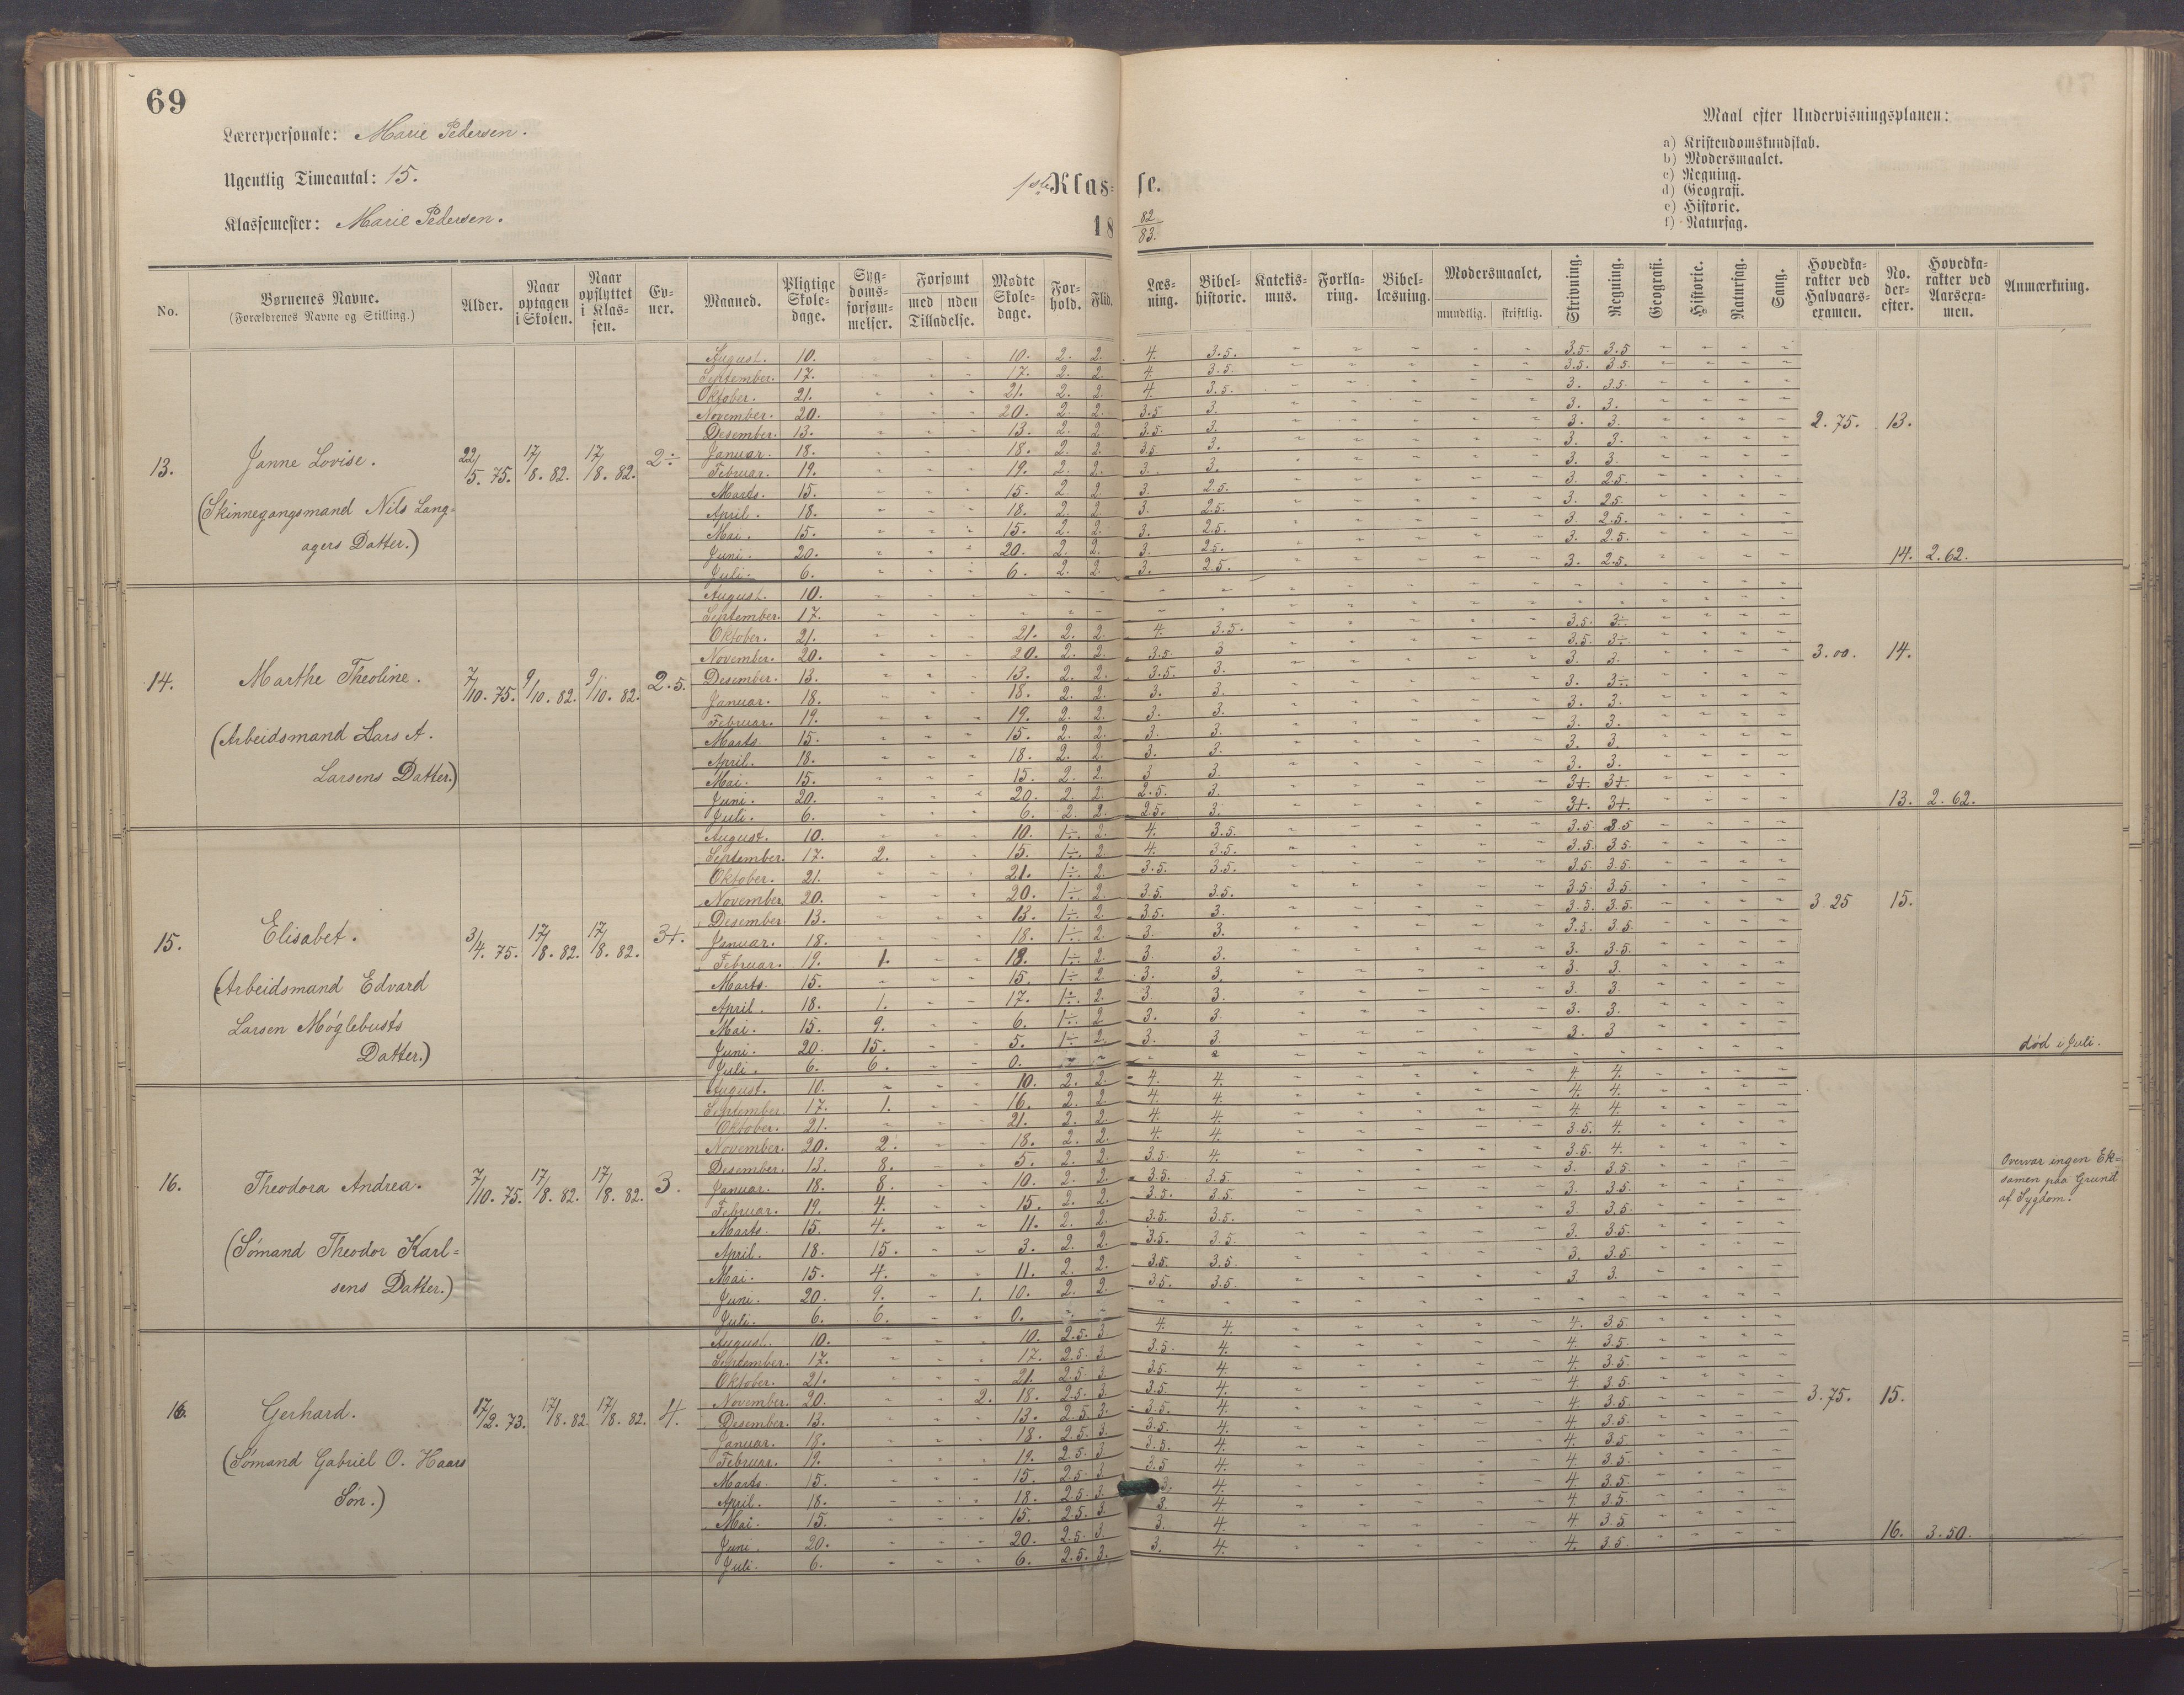 69
Lærerpersonale: Marie Pedersen.
Ugentlig Timeantal: 15.
Klassemester: Marie Pedersen.
1ste Klasse.
18 82/83.
Maal efter Undervisningsplanen:
a) Kristendomskundskab.
b) Modersmaalet.
c) Regning.
d) Geografi.
e) Historie.
f) Naturfag.
No. | Børnenes Navne. (Forældrenes Navne og Stilling.) | Alder. | Naar optagen i Skolen. | Naar opflyttet i Klassen. | Evner. | Maaned. | Pligtige Skoledage. | Sygdomsforsømmelser. | Forsømt med uden Tilladelse. | Mødte Skoledage. | Forhold. | Flid. | Læsning. | Bibelhistorie. | Katekismus. | Forklaring. | Bibellæsning. | Modersmaalet, mundtlig. skriftlig. | Skrivning. | Regning. | Geografi. | Historie. | Naturfag. | Sang. | Hovedkarakter ved Halvaarsexamen. | No. derefter. | Hovedkarakter ved Aarsexamen. | Anmærkning.
13. Janne Lovise. 22/5. 75. 17/8. 82. 17/8. 82. 2÷
(Skinnegangsmand Nils Lang=
agers Datter.)
August. 10. 10. 2. 2. 4. 3.5. 3.5. 3.5
September. 17. 17. 2. 2. 4. 3.5. 3.5. 3.5.
Oktober. 21. 21. 2. 2. 4. 3.5. 3. 3.5.
November. 20. 20. 2. 2. 3.5 3. 3. 3.
Desember. 13. 13. 2. 2. 3.5. 3. 3. 3. 2.75. 13.
Januar. 18. 18. 2. 2. 3.5 3. 3. 3.
Februar. 19. 19. 2. 2. 3. 3. 3. 3.
Marts. 15. 15. 2. 2. 3. 2.5. 3. 2.5.
April. 18. 18. 2. 2. 3. 2.5. 3. 2.5.
Mai. 15. 15. 2. 2. 3. 2.5. 3. 2.5.
Juni. 20. 20. 2. 2. 3. 2.5. 3. 2.5.
Juli. 6. 6. 2. 2. 3. 2.5. 3. 2.5. 14. 2.62.
14. Marthe Theoline. 7/10. 75. 9/10. 82. 9/10. 82. 2.5.
(Arbeidsmand Lars A.
Larsens Datter.)
August. 10.
September. 17.
Oktober. 21. 21. 2. 2. 4. 3.5. 3.5. 3÷
November. 20. 20. 2. 2. 3.5. 3 3.5. 3÷
Desember. 13. 13. 2. 2. 3.5. 3. 3. 3. 3.00. 14.
Januar. 18. 18. 2. 2. 3. 3. 3. 3÷
Februar. 19. 19. 2. 2. 3. 3. 3. 3.
Marts. 15. 15. 2. 2. 3. 3. 3. 3.
April. 18. 18. 2. 2. 3. 3. 3. 3.
Mai. 15. 15. 2. 2. 3 3. 3. 3.
Juni. 20. 20. 2. 2. 2.5. 3. 3+. 3+.
Juli. 6. 6. 2. 2. 2.5. 3. 3+. 3+. 13. 2.62.
15. Elisabet. 3/4. 75. 17/8. 82. 17/8. 82. 3+.
(Arbeidsmand Edvard
Larsen Møglebusts
Datter.)
August. 10. 10. 1÷. 2. 4. 3.5. 3.5 3.5
September. 17. 2. 15. 1÷. 2. 4. 3.5. 3.5. 3.5.
Oktober. 21. 21. 1÷. 2. 3.5. 3.5. 3.5. 3.5.
November. 20. 20. 1÷. 2. 3.5. 3.5. 3.5. 3.5.
Desember. 13. 13. 1÷. 2. 3.5. 3. 3.5. 3.5. 3.25 15.
Januar. 18. 18. 1÷. 2. 3. 3. 3.5. 3.5.
Februar. 19. 1. 18. 1÷. 2. 3. 3. 3. 3.5.
Marts. 15. 15. 1÷. 2. 3. 3. 3. 3.
April. 18. 1. 17. 1÷. 2. 3. 3. 3. 3.
Mai. 15. 9. 6. 1÷. 2. 3. 3. 3. 3.
Juni. 20. 15. 5. 1÷ 2. 3. 3. 3. 3
Juli. 6. 6. 0. død i Juli.
16. Theodora Andrea. 7/10. 75. 17/8. 82. 17/8. 82. 3.
(Sømand Theodor Karl=
sens Datter.)
August. 10. 10. 2. 2. 4. 4. 4. 4.
September. 17. 1. 16. 2. 2. 4. 4. 4. 4.
Oktober. 21. 21. 2. 2. 4. 4. 4. 4.
November. 20. 2. 18. 2. 2. 4. 4. 3.5. 4.
Desember. 13. 8. 5. 2. 2. 3.5. 4. 3.5. 4.
Januar. 18. 8. 10. 2. 2. 3.5. 3.5. 3. 3.5.
Februar. 19. 4. 15. 2. 2. 3.5. 3.5. 3. 3.5.
Marts. 15. 4. 11. 2. 2. 3.5. 3.5. 3 3.5.
April. 18. 15. 3. 2. 2. 3.5. 3.5. 3. 3.5.
Mai. 15. 4. 11. 2. 2. 3.5. 3.5. 3. 3.5.
Juni. 20. 9. 1. 10. 2. 2. 3.5. 3.5. 3. 3.
Juli. 6. 6. 0.
Overvar ingen Ek=
samen paa Grund
af Sygdom.
16. Gerhard. 17/2. 73. 17/8. 82 17/8. 82. 4.
(Sømand Gabriel O. Haars
Søn.)
August. 10. 10. 2.5. 3 4. 4. 4. 3.5.
September. 17. 17. 2.5. 3. 3.5. 4. 4. 3.5.
Oktober. 21. 21. 2.5. 3. 3.5. 4. 4. 3.5.
November. 20. 2. 18. 2.5. 3. 3.5. 4. 4. 3.5.
Desember. 13. 13. 2.5. 3. 3.5. 4. 4. 3.5. 3.75. 15.
Januar. 18. 18. 2.5. 3. 3.5. 4. 4. 3.5.
Februar. 19. 19. 2.5. 3. 3.5. 4. 4. 3.5.
Marts. 15. 15. 2.5. 3. 3.5 4. 4. 3.5.
April. 18. 18. 2.5. 3. 3. 4. 4. 3.5.
Mai. 15. 15. 2.5. 3. 3. 4. 4. 3.5.
Juni. 20. 20. 2.5. 3. 3. 4. 4. 3.5.
Juli. 6. 6. 2.5. 3. 3. 4. 4. 3.5. 16. 3.50.